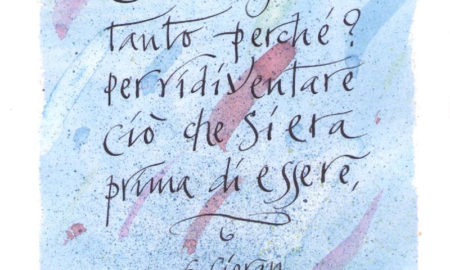 tanto perché?
per ridiventare
ciò che si era
prima di essere,
Cioran